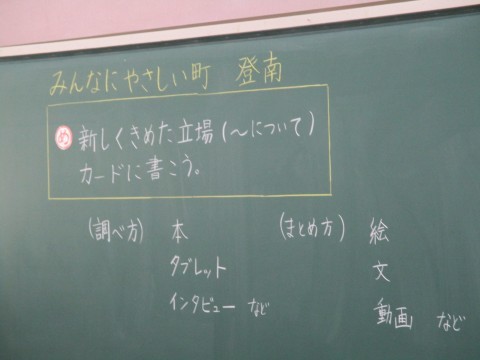 みんなにやさしい町 登南
め 新しくきめた立場(〜について)
カードに書こう。
(調べ方) 本
タブレット
インタビュー など
(まとめ方) 絵
文
動画 など